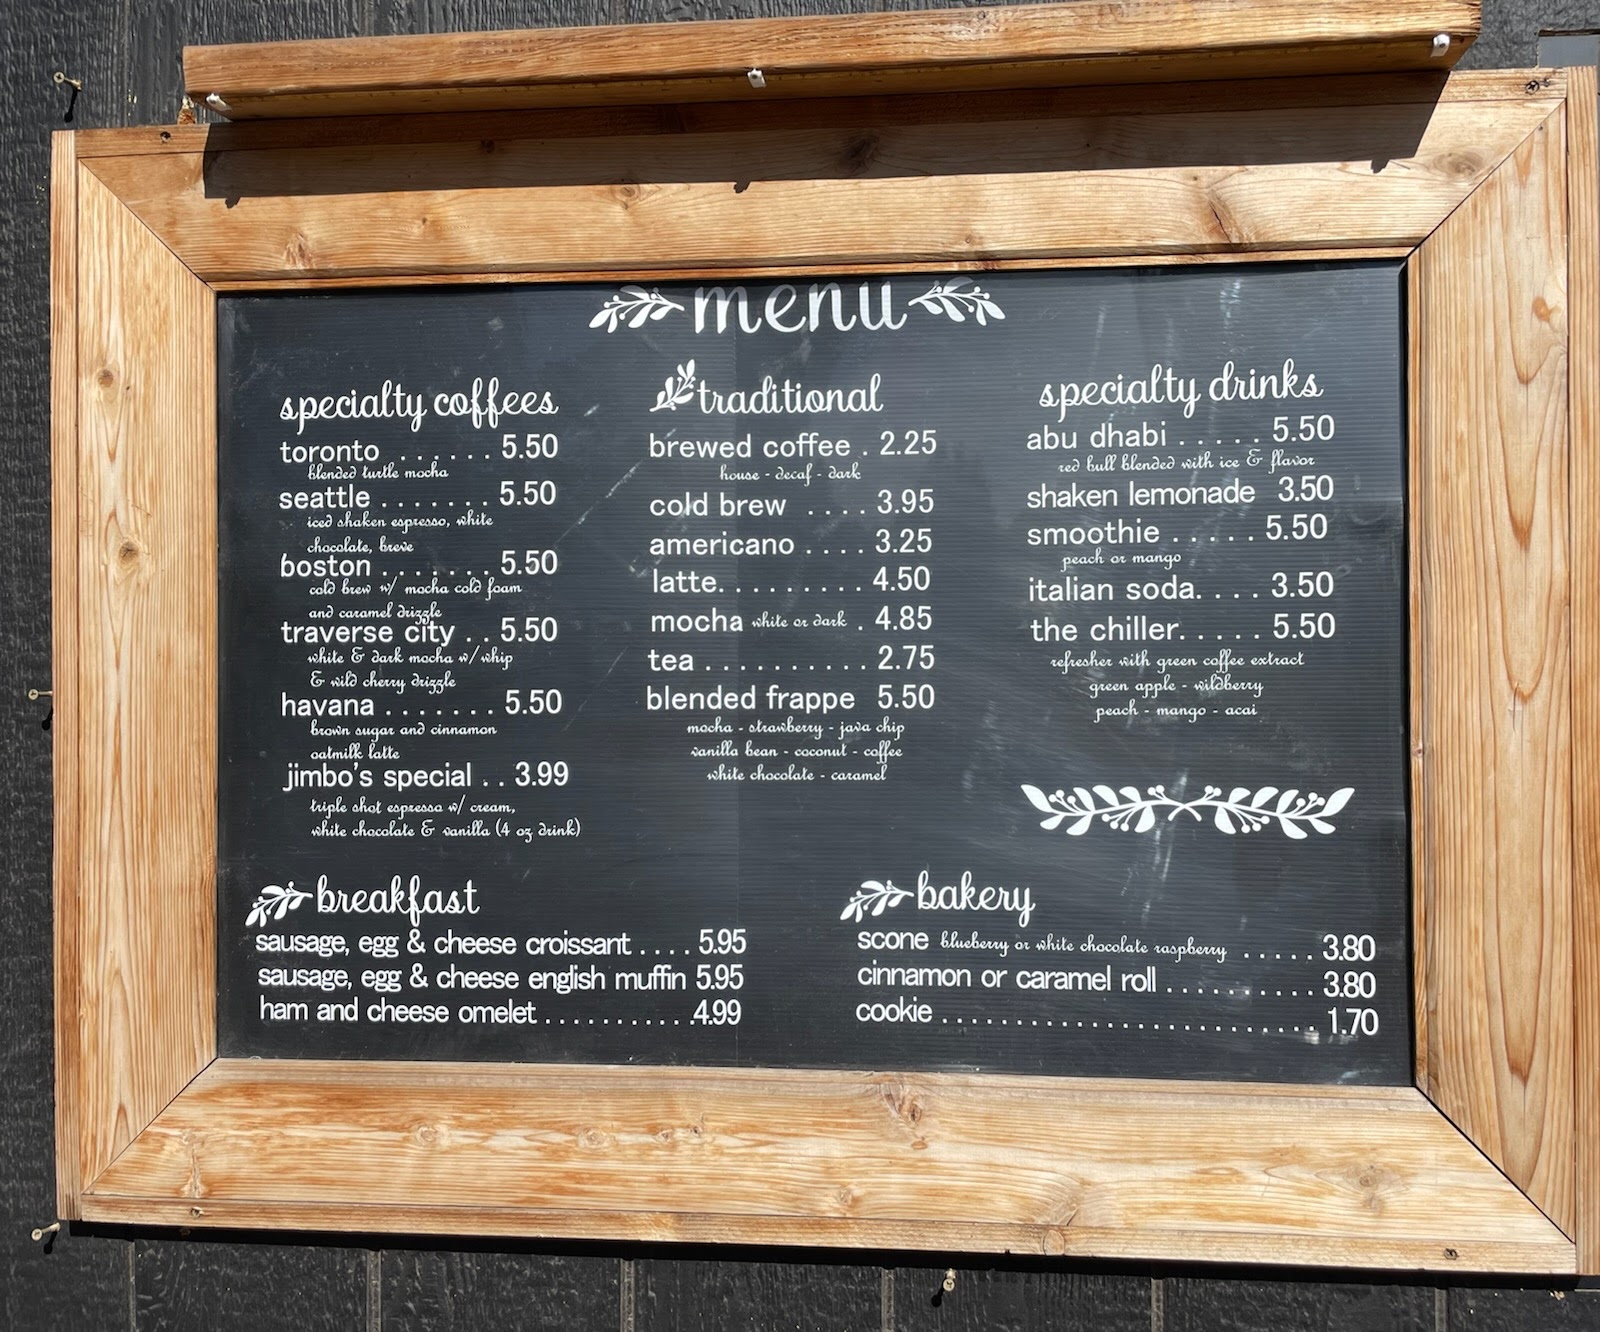 menu
specialty coffees
toronto . . . . . . 5.50
blended turtle mocha
seattle . . . . . . . 5.50
iced shaken espresso, white
chocolate, breve
boston . . . . . . . 5.50
cold brew w/ mocha cold foam
and caramel drizzle
traverse city . . 5.50
white & dark mocha w/ whip
& wild cherry drizzle
havana . . . . . . . 5.50
brown sugar and cinnamon
oatmilk latte
jimbo's special . . 3.99
triple shot espresso w/ cream,
white chocolate & vanilla (4 oz drink)
traditional
brewed coffee . 2.25
house - decaf - dark
cold brew . . . . 3.95
americano . . . . 3.25
latte. . . . . . . . . 4.50
mocha white or dark . 4.85
tea . . . . . . . . . . 2.75
blended frappe 5.50
mocha - strawberry - java chip
vanilla bean - coconut - coffee
white chocolate - caramel
specialty drinks
abu dhabi . . . . . 5.50
red bull blended with ice & flavor
shaken lemonade 3.50
smoothie . . . . . 5.50
peach or mango
italian soda. . . . 3.50
the chiller. . . . . 5.50
refresher with green coffee extract
green apple - wildberry
peach - mango - acai
breakfast
sausage, egg & cheese croissant . . . . 5.95
sausage, egg & cheese english muffin 5.95
ham and cheese omelet . . . . . . . . . . .4.99
bakery
scone blueberry or white chocolate raspberry . . . . . 3.80
cinnamon or caramel roll . . . . . . . . . . 3.80
cookie . . . . . . . . . . . . . . . . . . . . . . . . . 1.70